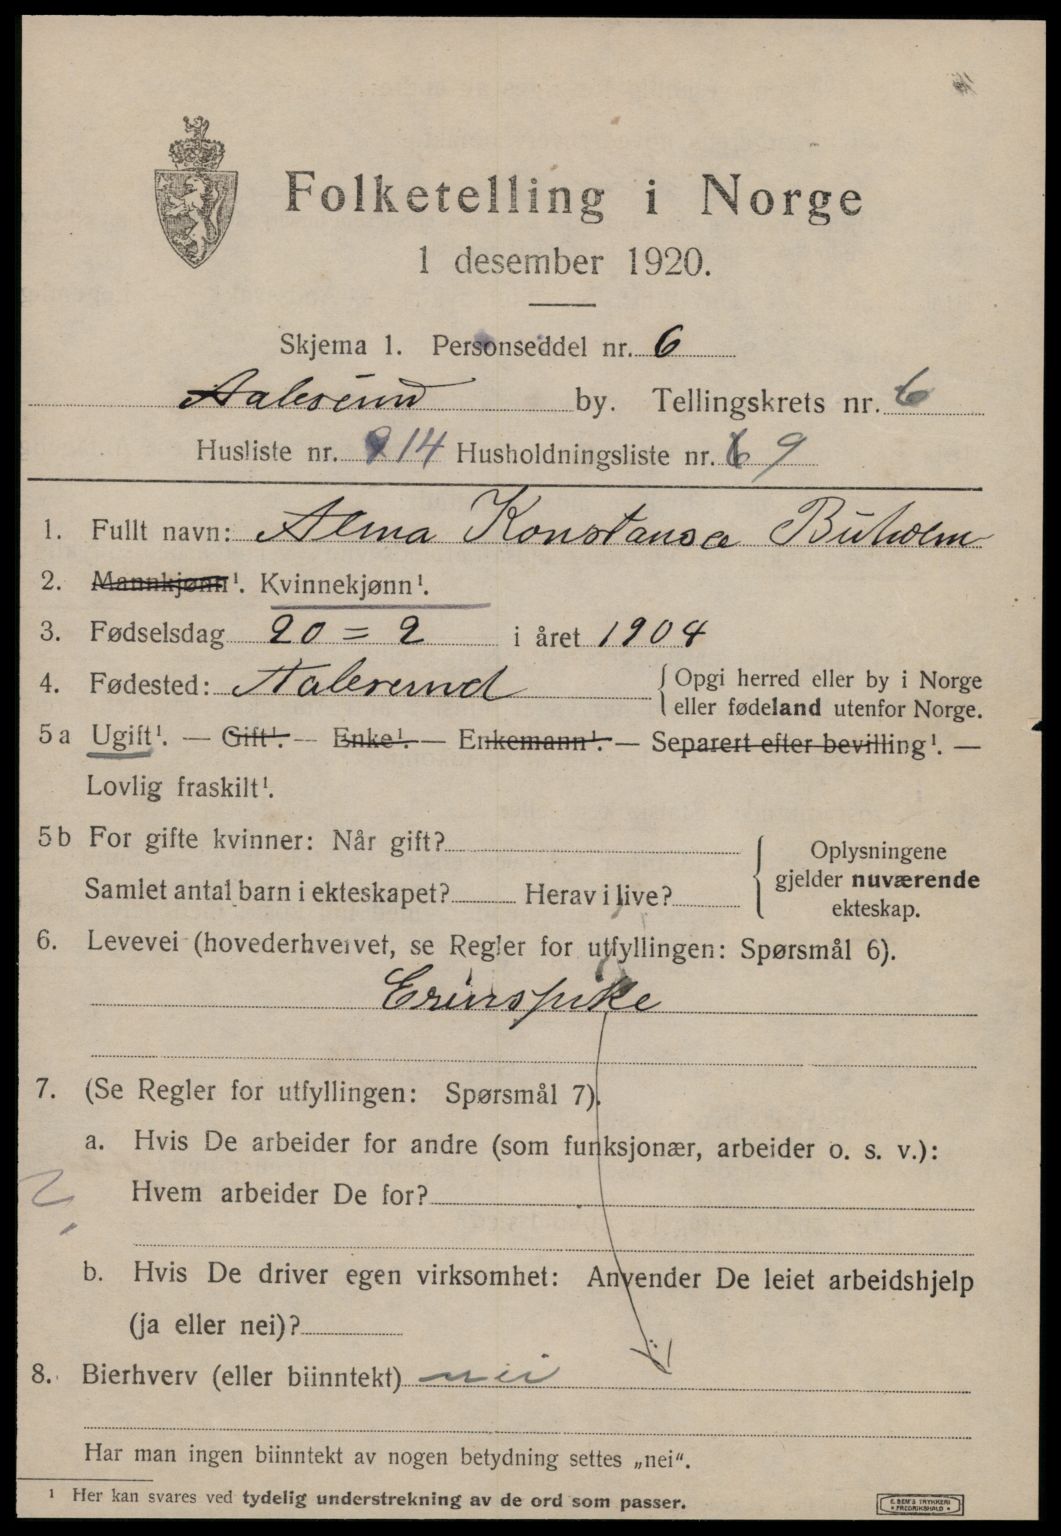 Folketelling i Norge
1 desember 1920.
Skjema 1. Personseddel nr. 6
Aalesund by. Tellingskrets nr. 6
Husliste nr. 14 Husholdningsliste nr. 9
1. Fullt navn: Alma Konstansa Buholm
2. Mannkjønn¹. Kvinnekjønn¹.
3. Fødselsdag 20 = 2 i året 1904
4. Fødested: Aalesund
{ Opgi herred eller by i Norge
eller fødeland utenfor Norge.
5 a Ugift¹. — Gift¹. — Enke¹. — Enkemann¹. — Separert efter bevilling¹. —
Lovlig fraskilt¹.
5 b For gifte kvinner: Når gift?
Samlet antal barn i ekteskapet? Herav i live?
{ Oplysningene
gjelder nuværende
ekteskap.
6. Levevei (hovederhvervet, se Regler for utfyllingen: Spørsmål 6).
7. (Se Regler for utfyllingen: Spørsmål 7).
a. Hvis De arbeider for andre (som funksjonær, arbeider o. s. v.):
Hvem arbeider De for?
b. Hvis De driver egen virksomhet: Anvender De leiet arbeidshjelp
(ja eller nei)?
8. Bierhverv (eller biinntekt) nei
Har man ingen biinntekt av nogen betydning settes „nei".
¹ Her kan svares ved tydelig understrekning av de ord som passer.
E. SEM'S TRYKKERI
FREDRIKSHALD